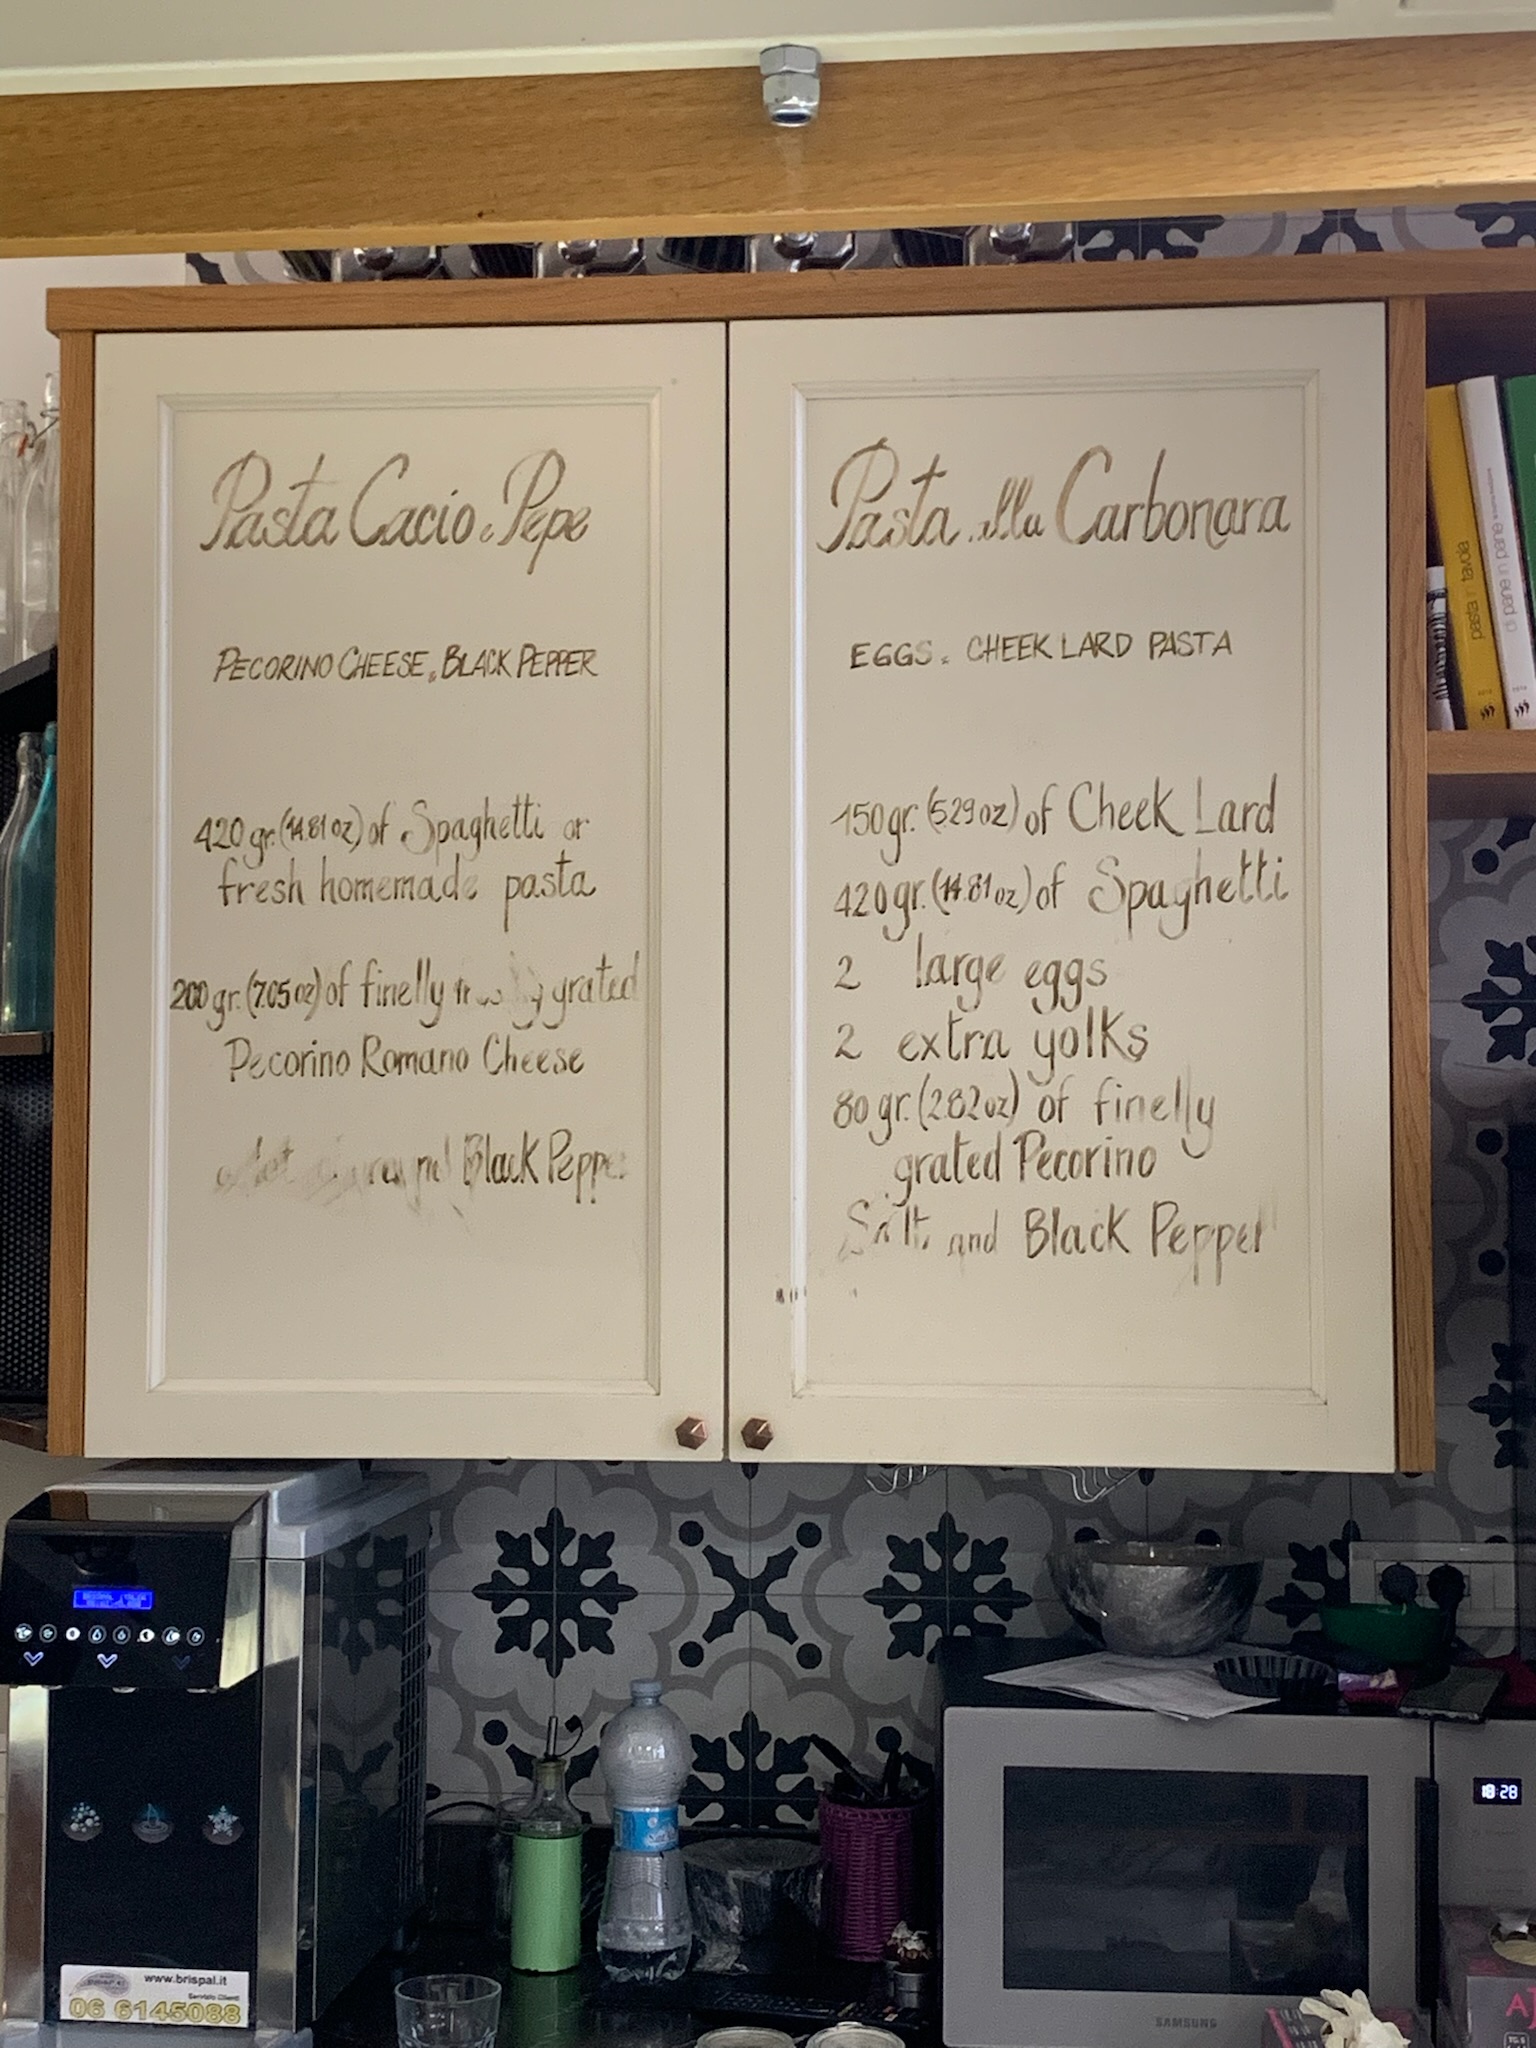 Pasta Cacio e Pepe
PECORINO CHEESE & BLACK PEPPER
420 gr. (14.81 oz) of Spaghetti or
fresh homemade pasta
200 gr. (7.05 oz) of finelly grated
Pecorino Romano Cheese
Black Pepper
Pasta alla Carbonara
EGGS & CHEEK LARD PASTA
150 gr. (5.29 oz) of Cheek Lard
420 gr. (14.81 oz) of Spaghetti
2 large eggs
2 extra yolks
80 gr. (2.82 oz) of finelly
grated Pecorino
Salt and Black Pepper
pasta in tavola
di pane in pane
www.brispal.it
Servizio Clienti
06 6145088
SAMSUNG
18:28